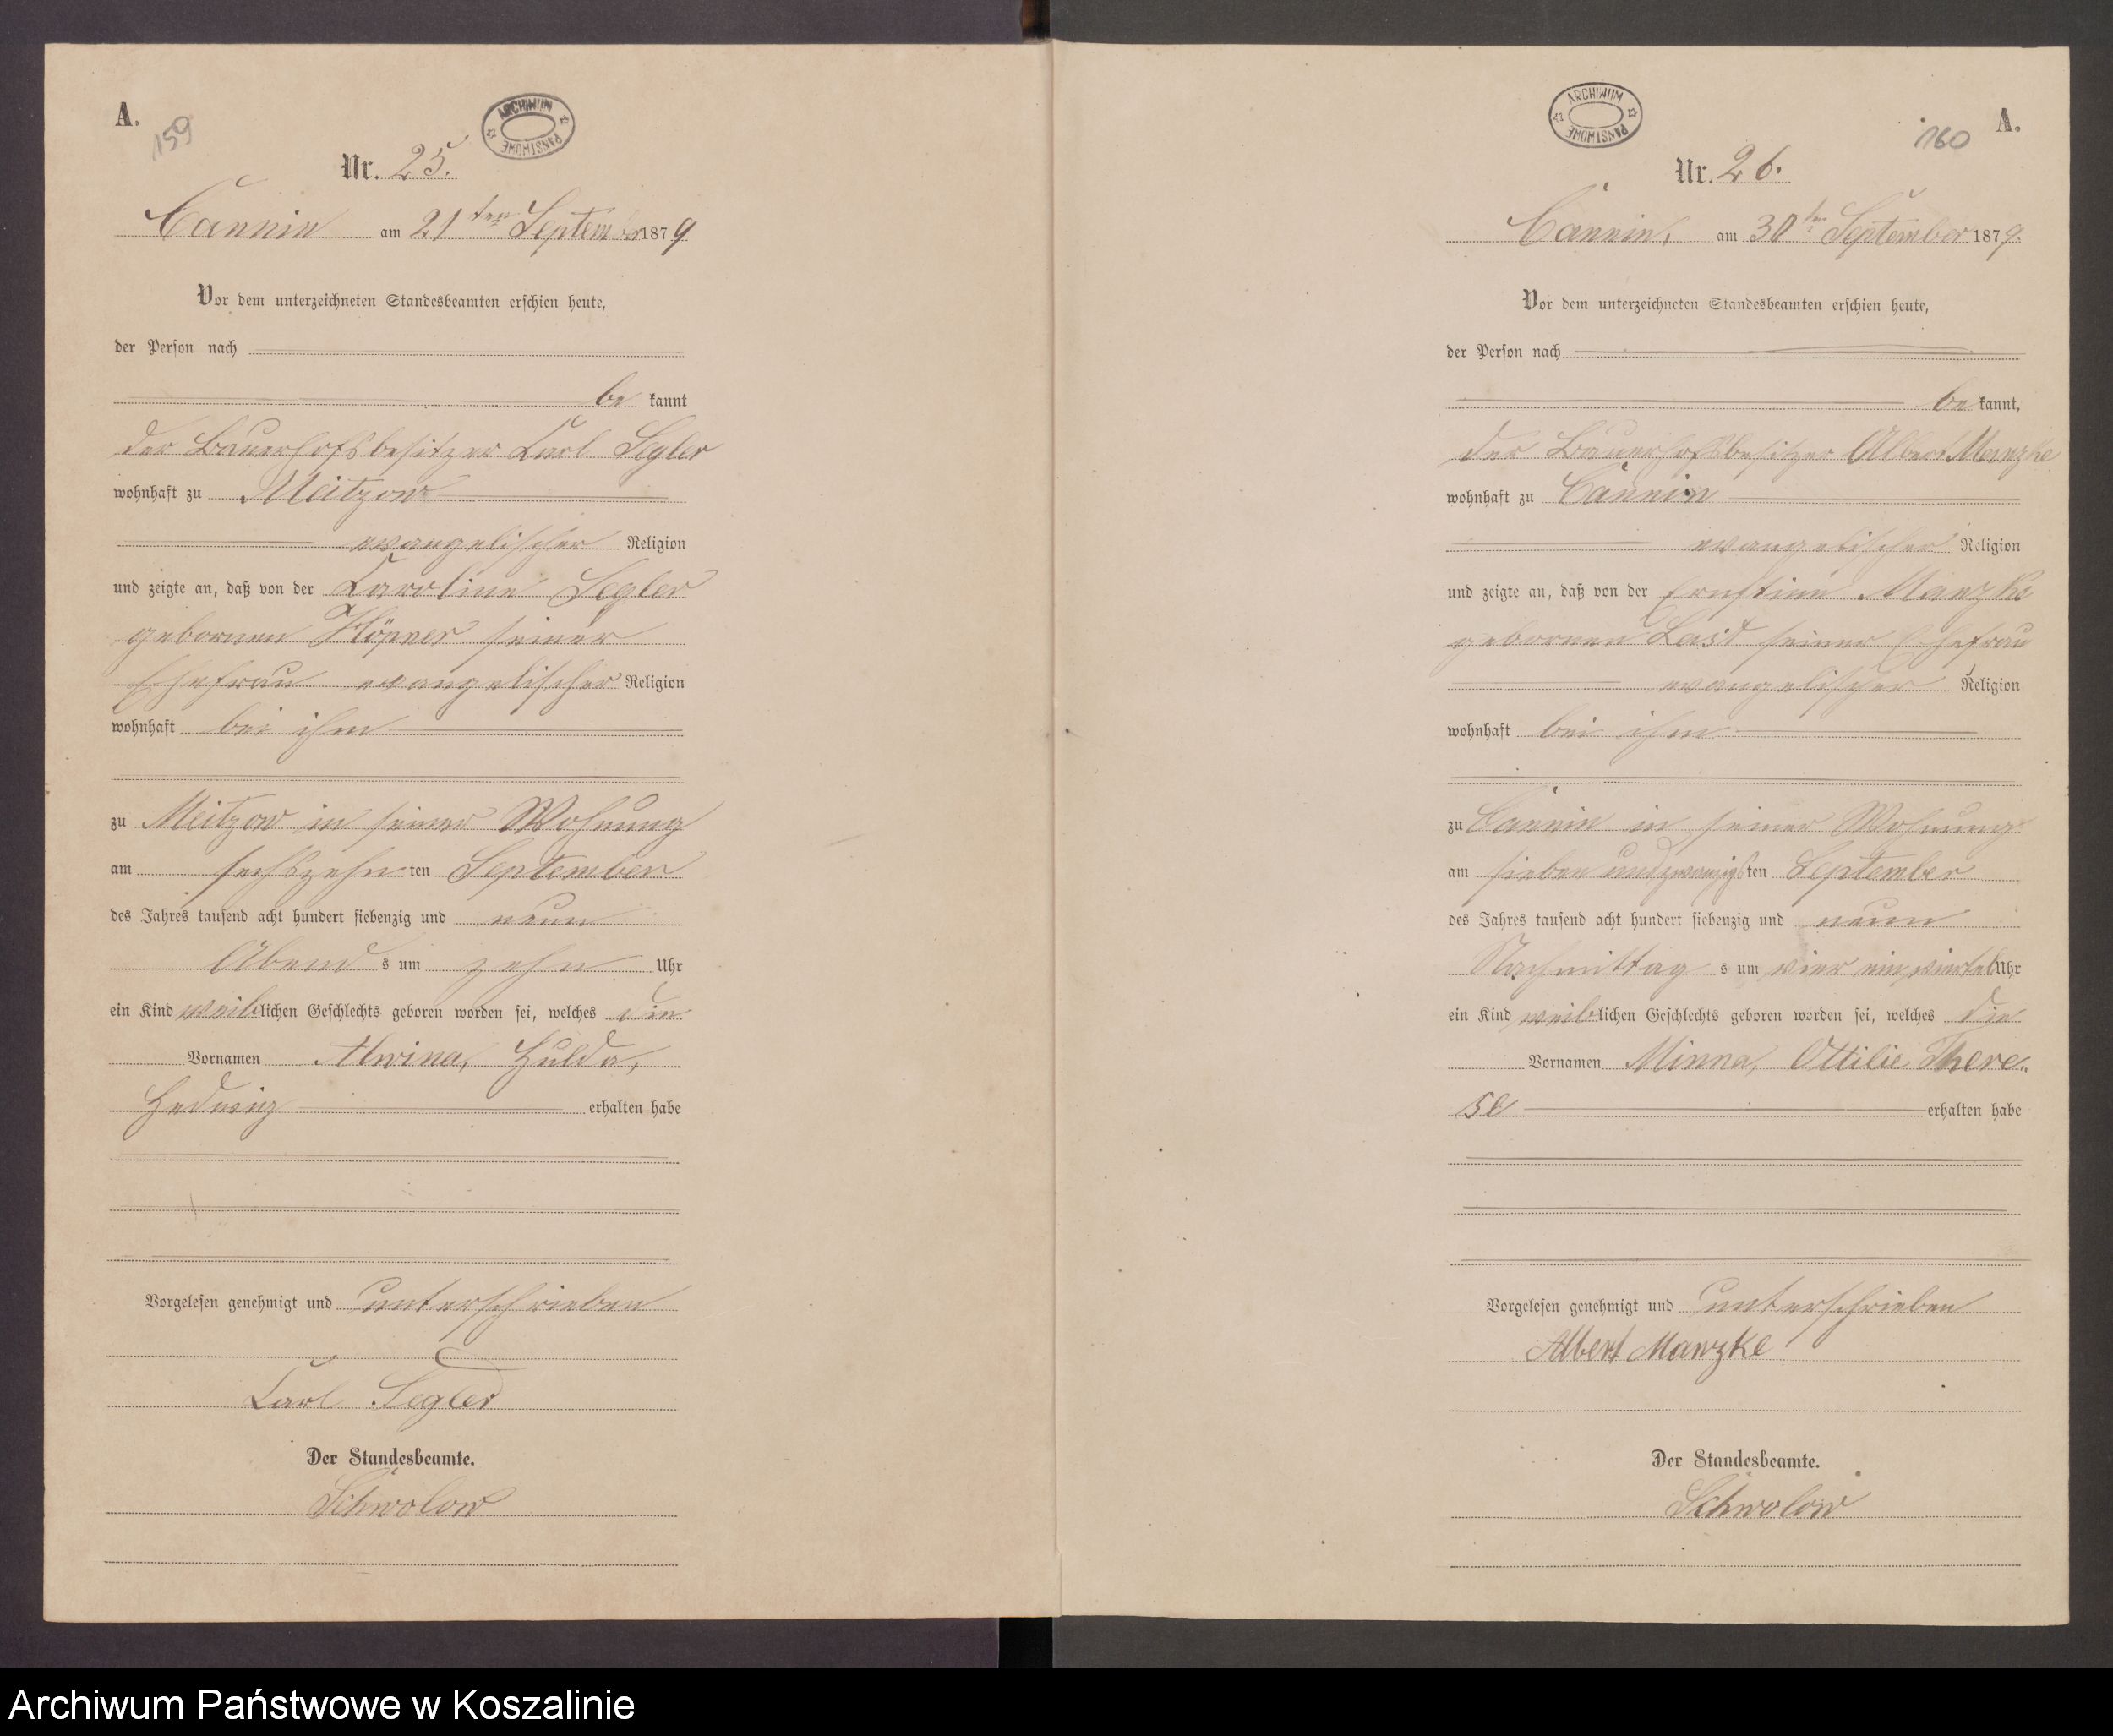 A.
159
ARCHIWUM PAŃSTWOWE
Nr. 25.
Cannin am 21ten September 1879
Vor dem unterzeichneten Standesbeamten erschien heute,
der Person nach
be kannt
der Bauerhofsbesitzer Carl Segler
wohnhaft zu Meitzow
evangelischer Religion
und zeigte an, daß von der Caroline Segler
geborenen Höpner seiner
Ehefrau evangelischer Religion
wohnhaft bei ihm
zu Meitzow in seiner Wohnung
am sechszehn ten September
des Jahres tausend acht hundert siebenzig und neun
Abend s um zehn Uhr
ein Kind weiblichen Geschlechts geboren worden sei, welches die
Vornamen Alwina, Hulda,
Hedwig erhalten habe
Vorgelesen genehmigt und unterschrieben
Carl Segler
Der Standesbeamte.
Schwolow
ARCHIWUM PAŃSTWOWE
160
A.
Nr. 26.
Cannin, am 30ten September 1879.
Vor dem unterzeichneten Standesbeamten erschien heute,
der Person nach
be kannt,
der Bauerhofsbesitzer Albert Manzke
wohnhaft zu Cannin
evangelischer Religion
und zeigte an, daß von der Ernstine Manzke
geborenen Last seiner Ehefrau
evangelischer Religion
wohnhaft bei ihm
zu Cannin in seiner Wohnung
am sieben und zwanzigsten September
des Jahres tausend acht hundert siebenzig und neun
Nachmittag s um vier ein viertel Uhr
ein Kind weiblichen Geschlechts geboren worden sei, welches die
Vornamen Minna, Ottilie There-
se erhalten habe
Vorgelesen genehmigt und unterschrieben
Albert Manzke
Der Standesbeamte.
Schwolow
Archiwum Państwowe w Koszalinie